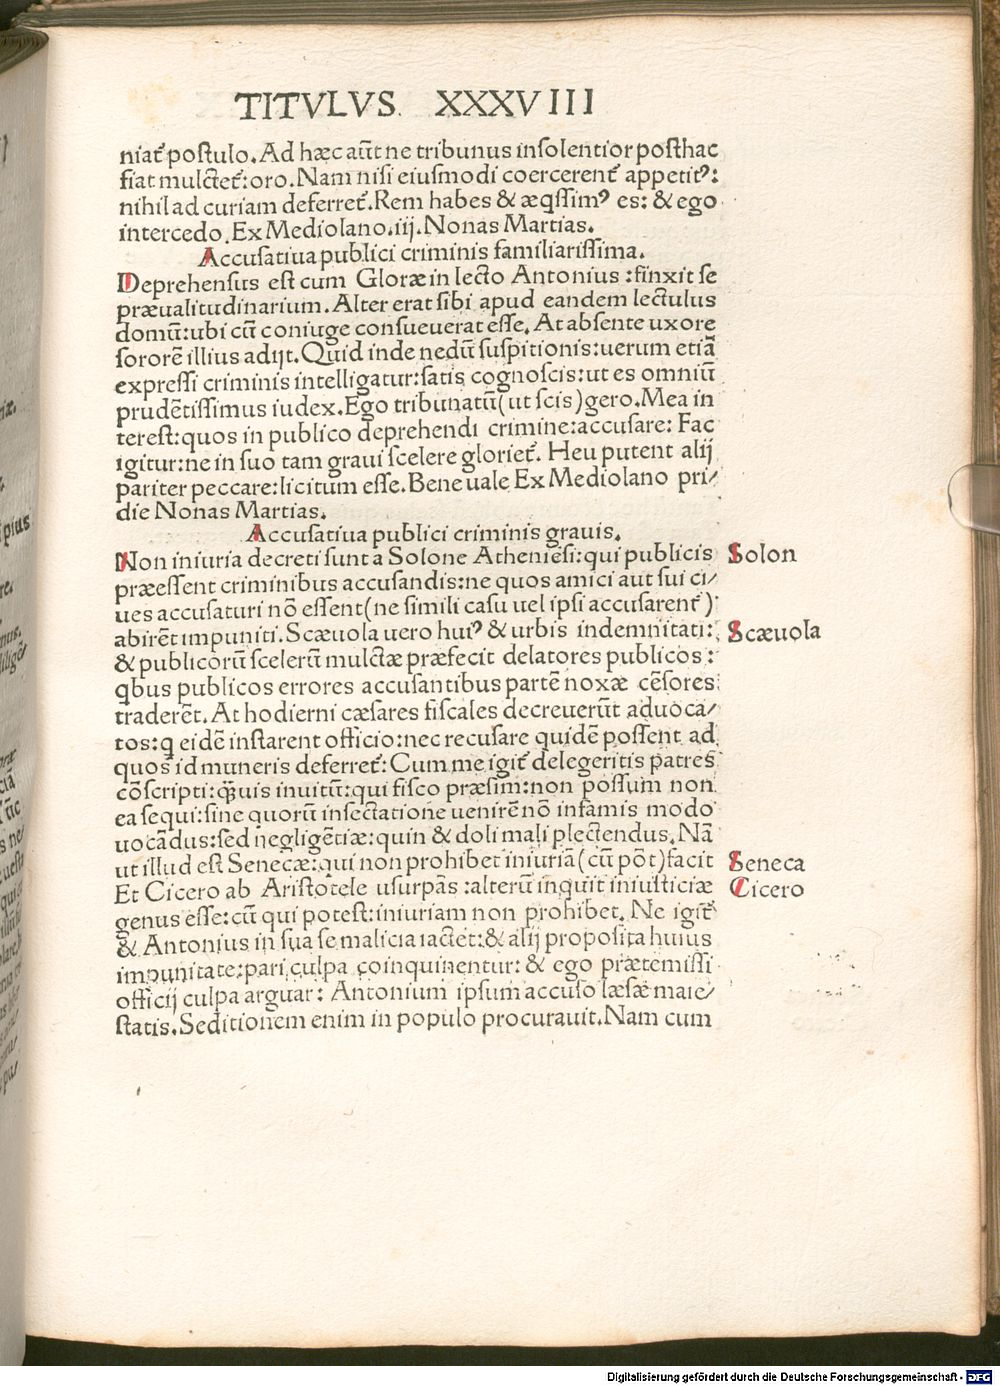 TITVLVS. XXXVIII
niat᷑ postulo. Ad hæc aūt ne tribunus insolentior posthac
fiat mulctet᷑: oro. Nam nisi eiusmodi coercerent᷑ appetitꝰ:
nihil ad curiam deferret᷑. Rem habes & æqssimꝰ es: & ego
intercedo. Ex Mediolano. iij. Nonas Martias.
Accusatiua publici criminis familiarissima.
Deprehensus est cum Gloræ in lecto Antonius: finxit se
præualitudinarium. Alter erat sibi apud eandem lectulus
domū: ubi cū coniuge consueuerat esse. At absente uxore
sororē illius adijt. Quid inde nedū suspitionis: uerum etiā
expressi criminis intelligatur: satis cognoscis: ut es omniū
prudētissimus iudex. Ego tribunatū (ut scis) gero. Mea in
terest: quos in publico deprehendi crimine: accusare: Fac
igitur: ne in suo tam graui scelere gloriet᷑. Heu putent alij
pariter peccare: licitum esse. Bene uale Ex Mediolano pri/
die Nonas Martias.
Accusatiua publici criminis grauis.
Non iniuria decreti sunt a Solone Atheniēsi: qui publicis
Solon
præessent criminibus accusandis: ne quos amici aut sui ci/
ues accusaturi nō essent (ne simili casu uel ipsi accusarent᷑)
abirēt impuniti. Scæuola uero huiꝰ & urbis indemnitati:
Scæuola
& publicorū scelerū mulctæ præfecit delatores publicos:
qbus publicos errores accusantibus partē noxæ cēsores
traderēt. At hodierni cæsares fiscales decreuerūt aduoca/
tos: q eidē instarent officio: nec recusare quidē possent ad
quos id muneris deferret᷑: Cum me igit᷑ delegeritis patres
cōscripti: qƺuis inuitū: qui fisco præsim: non possum non
ea sequi: sine quorū insectatione uenirē nō infamis modo
uocādus: sed negligētiæ: quin & doli mali plectendus. Nā
ut illud est Senecæ: qui non prohibet iniuriā (cū pōt) facit
Seneca
Et Cicero ab Aristotele usurpās: alterū inquit iniusticiæ
Cicero
genus esse: cū qui potest: iniuriam non prohibet. Ne igit᷑
& Antonius in sua se malicia iactet: & alij proposita huius
impunitate: pari culpa coinquinentur: & ego prætemissi
officij culpa arguar: Antonium ipsum accuso læsæ maie/
statis. Seditionem enim in populo procurauit. Nam cum
Digitalisierung gefördert durch die Deutsche Forschungsgemeinschaft - DFG